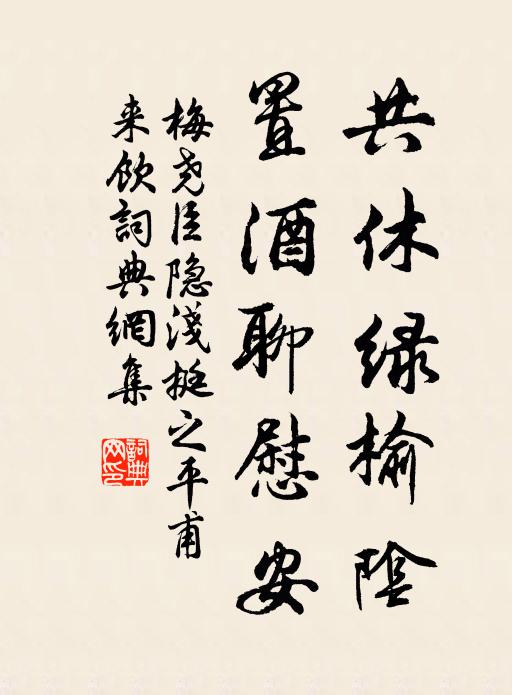 共休绿榆陰
置酒聊慰安
梅尧臣隐淺挺之平甫
来飲詞典網集
詞典网印